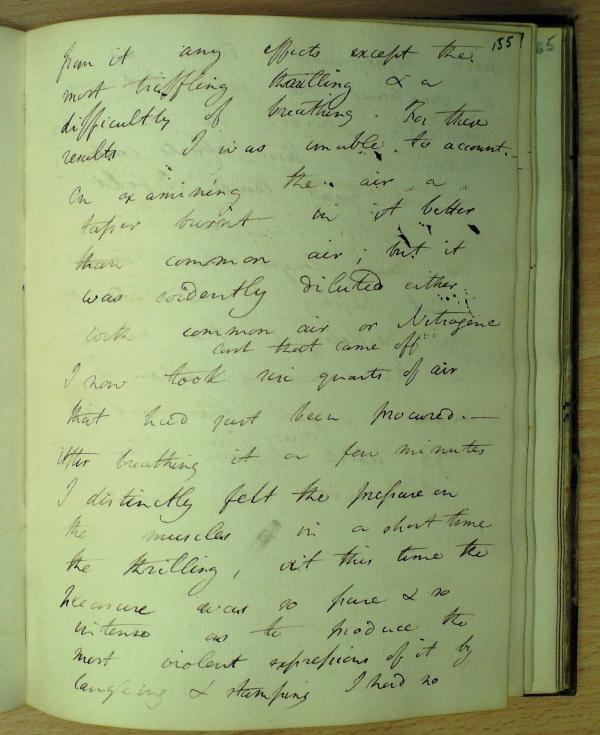 155
from it any effects except the
most triffling thrilling & a
difficultly of breathing. For these
results I was unable to account.
On examining the air a
taper burnt in it better
than common air; but it
was evidently diluted either
with common air or Nitrogene
that came off
I now took six quarts of air
that had just been procured.—
After breathing it a few minutes
I distinctly felt the pressure on
the muscles in a short time
the thrilling, at this time the
pleasure was so pure & so
intense as to produce the
most violent expressions of it by
laughing & stamping I had no